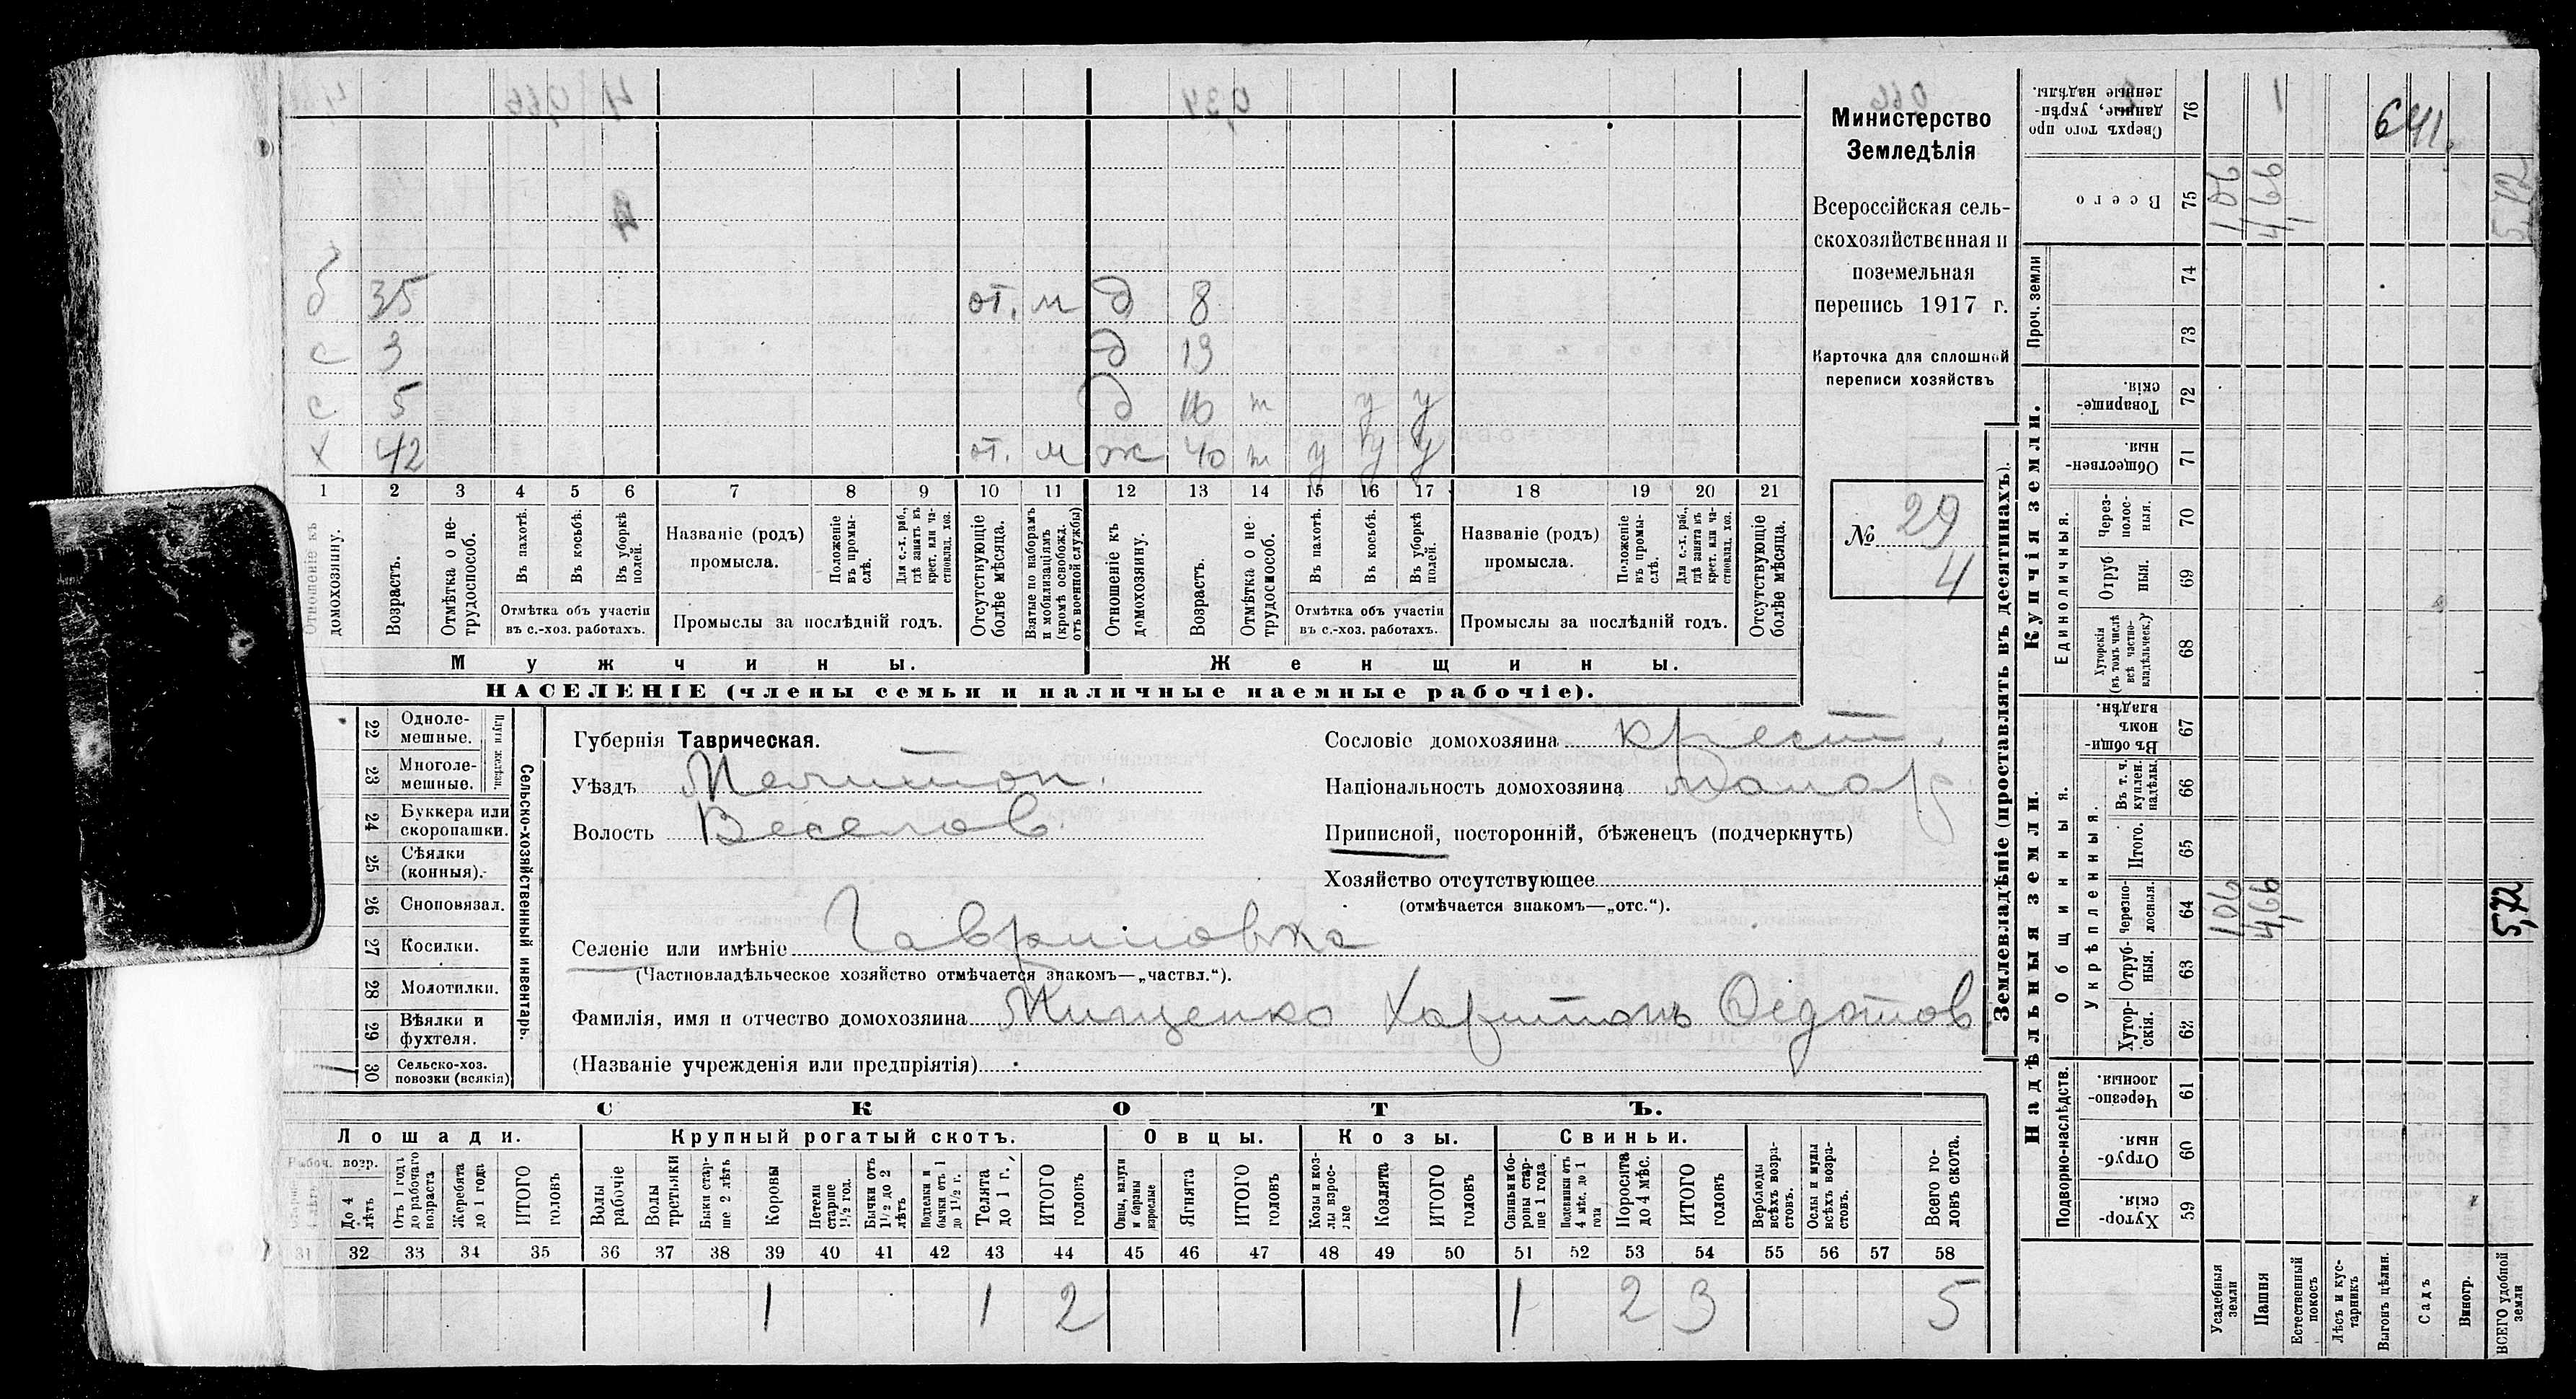 б 35 от. м д 8
с 3 д 13
с 5 д 16 т у у
х 42 от. м ж 40 т у у у
1 2 3 4 5 6 7 8 9 10 11 12 13 14 15 16 17 18 19 20 21
Отношеніе къ домохозяину.
Возрастъ.
Отмѣтка о не-
трудоспособ.
Въ пахотѣ.
Въ косьбѣ.
Въ уборкѣ
полей.
Отмѣтка объ участіи
въ с.-хоз. работахъ.
Названіе (родъ)
промысла.
Положеніе
въ промы-
слѣ.
Для с.-х. раб.,
гдѣ занятъ въ
крест. или ча-
стновлад. хоз.
Промыслы за послѣдній годъ.
Отсутствующіе
болѣе мѣсяца.
Взятые по наборамъ
и мобилизаціямъ
(кромѣ освобожд.
отъ военной службы)
Отношеніе къ
домохозяину.
Возрастъ.
Отмѣтка о не-
трудоспособ.
Въ пахотѣ.
Въ косьбѣ.
Въ уборкѣ
полей.
Отмѣтка объ участіи
въ с.-хоз. работахъ.
Названіе (родъ)
промысла.
Положеніе
въ промы-
слѣ.
Для с.-х. раб.,
гдѣ занята въ
крест. или ча-
стновлад. хоз.
Промыслы за послѣдній годъ.
Отсутствующіе
болѣе мѣсяца.
Мужчины. Женщины.
НАСЕЛЕНІЕ (члены семьи и наличные наемные рабочіе).
Министерство
Земледѣлія
Всероссійская сель-
скохозяйственная и
поземельная
перепись 1917 г.
Карточка для сплошной
переписи хозяйствъ
№ 29
4
22 Одноле-
мешные.
23 Многоле-
мешные.
Плуги желѣзн.
24 Буккера или
скоропашки.
25 Сѣялки
(конныя).
26 Сноповязал.
27 Косилки.
28 Молотилки.
29 Вѣялки и
фухтеля.
30 Сельско-хоз.
повозки (всякія)
Сельско-хозяйственный инвентарь.
Губернія Таврическая.
Уѣздъ Мелитоп.
Волость Веселов.
Сословіе домохозяина крест.
Національность домохозяина малор
Приписной, посторонній, бѣженецъ (подчеркнуть)
Хозяйство отсутствующее
(отмѣчается знакомъ—„отс.“).
Селеніе или имѣніе Гавриловка
(Частновладѣльческое хозяйство отмѣчается знакомъ—„частвл.“).
Фамилія, имя и отчество домохозяина Мищенко Харитонъ Ѳедотов
(Названіе учрежденія или предпріятія)
СКОТЪ.
Лошади. Крупный рогатый скотъ. Овцы. Козы. Свиньи.
Рабоч. возр.
До 4
лѣтъ
Отъ 1 года
до рабочаго
возраста
Жеребята
до 1 года
ИТОГО
головъ
Волы
рабочіе
Волы
третьяки
Быки стар-
ше 2 лѣтъ
Коровы
Нетели
старше
1½ год.
Бычки отъ
1½ до 2
лѣтъ
Подтелки и
бычки отъ 1
до 1½ г.
Телята
до 1 г.
ИТОГО
головъ
Овцы, валухи
и бараны
взрослые
Ягнята
ИТОГО
головъ
Козы и коз-
лы взрос-
лые
Козлята
ИТОГО
головъ
Свиньи и бо-
ровы стар-
ше 1 года
Подсвинки отъ
4 мѣс. до 1
года
Поросята
до 4 мѣс.
ИТОГО
головъ
Верблюды
всѣхъ возра-
стовъ.
Ослы и мулы
всѣхъ возра-
стовъ.
Всего го-
ловъ скота.
31 32 33 34 35 36 37 38 39 40 41 42 43 44 45 46 47 48 49 50 51 52 53 54 55 56 57 58
1 1 2 1 2 3 5
Землевладѣніе (проставлять въ десятинахъ).
Надѣльныя земли. Купчія земли. Проч. земли
Подворно-наслѣдств.
Общинныя.
Укрѣпленныя.
Единоличныя.
Хутор-
скія. 59
Отруб-
ныя. 60
Черезпо-
лосныя. 61
Хутор-
скія. 62
Отруб-
ныя. 63
Черезпо-
лосныя. 64
Итого. 65
Въ т. ч.
куплен.
надѣлы. 66
Въ общи-
номъ
владѣн. 67
Хуторскія
(въ томъ числѣ
всѣ частно-
владѣльческ.) 68
Отруб
ныя. 69
Через-
полос-
ныя. 70
Обществен-
ныя. 71
Товарище-
скія. 72
73
74
Всего 75
Сверхъ того про
данные, укрѣп-
ленные надѣлы. 76
Усадебныя
земли 1,06 1,06
Пашня 4,66 4,66
Естественный
покосъ
Лѣсъ и кус-
тарникъ
Выгонъ цѣлин. 641
Садъ
Виногр.
ВСЕГО удобной
земли 5,72 5,72